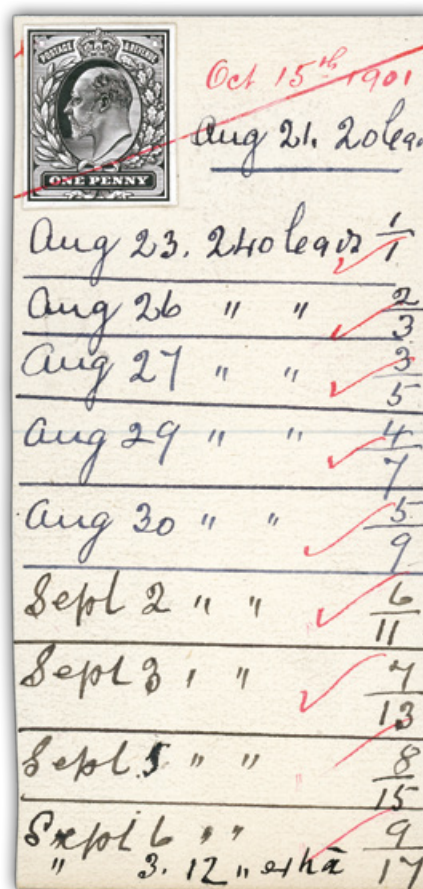 POSTAGE & REVENUE
ONE PENNY
Oct 15th 1901
Aug 21. 20 lea
Aug 23. 240 leavs 1/1
Aug 26 " " 2/3
Aug 27 " " 3/5
Aug 29 " " 4/7
Aug 30 " " 5/9
Sept 2 " " 6/11
Sept 3 " " 7/13
Sept 5 " " 8/15
Sept 6 " " 9/17
" 3. 12 "